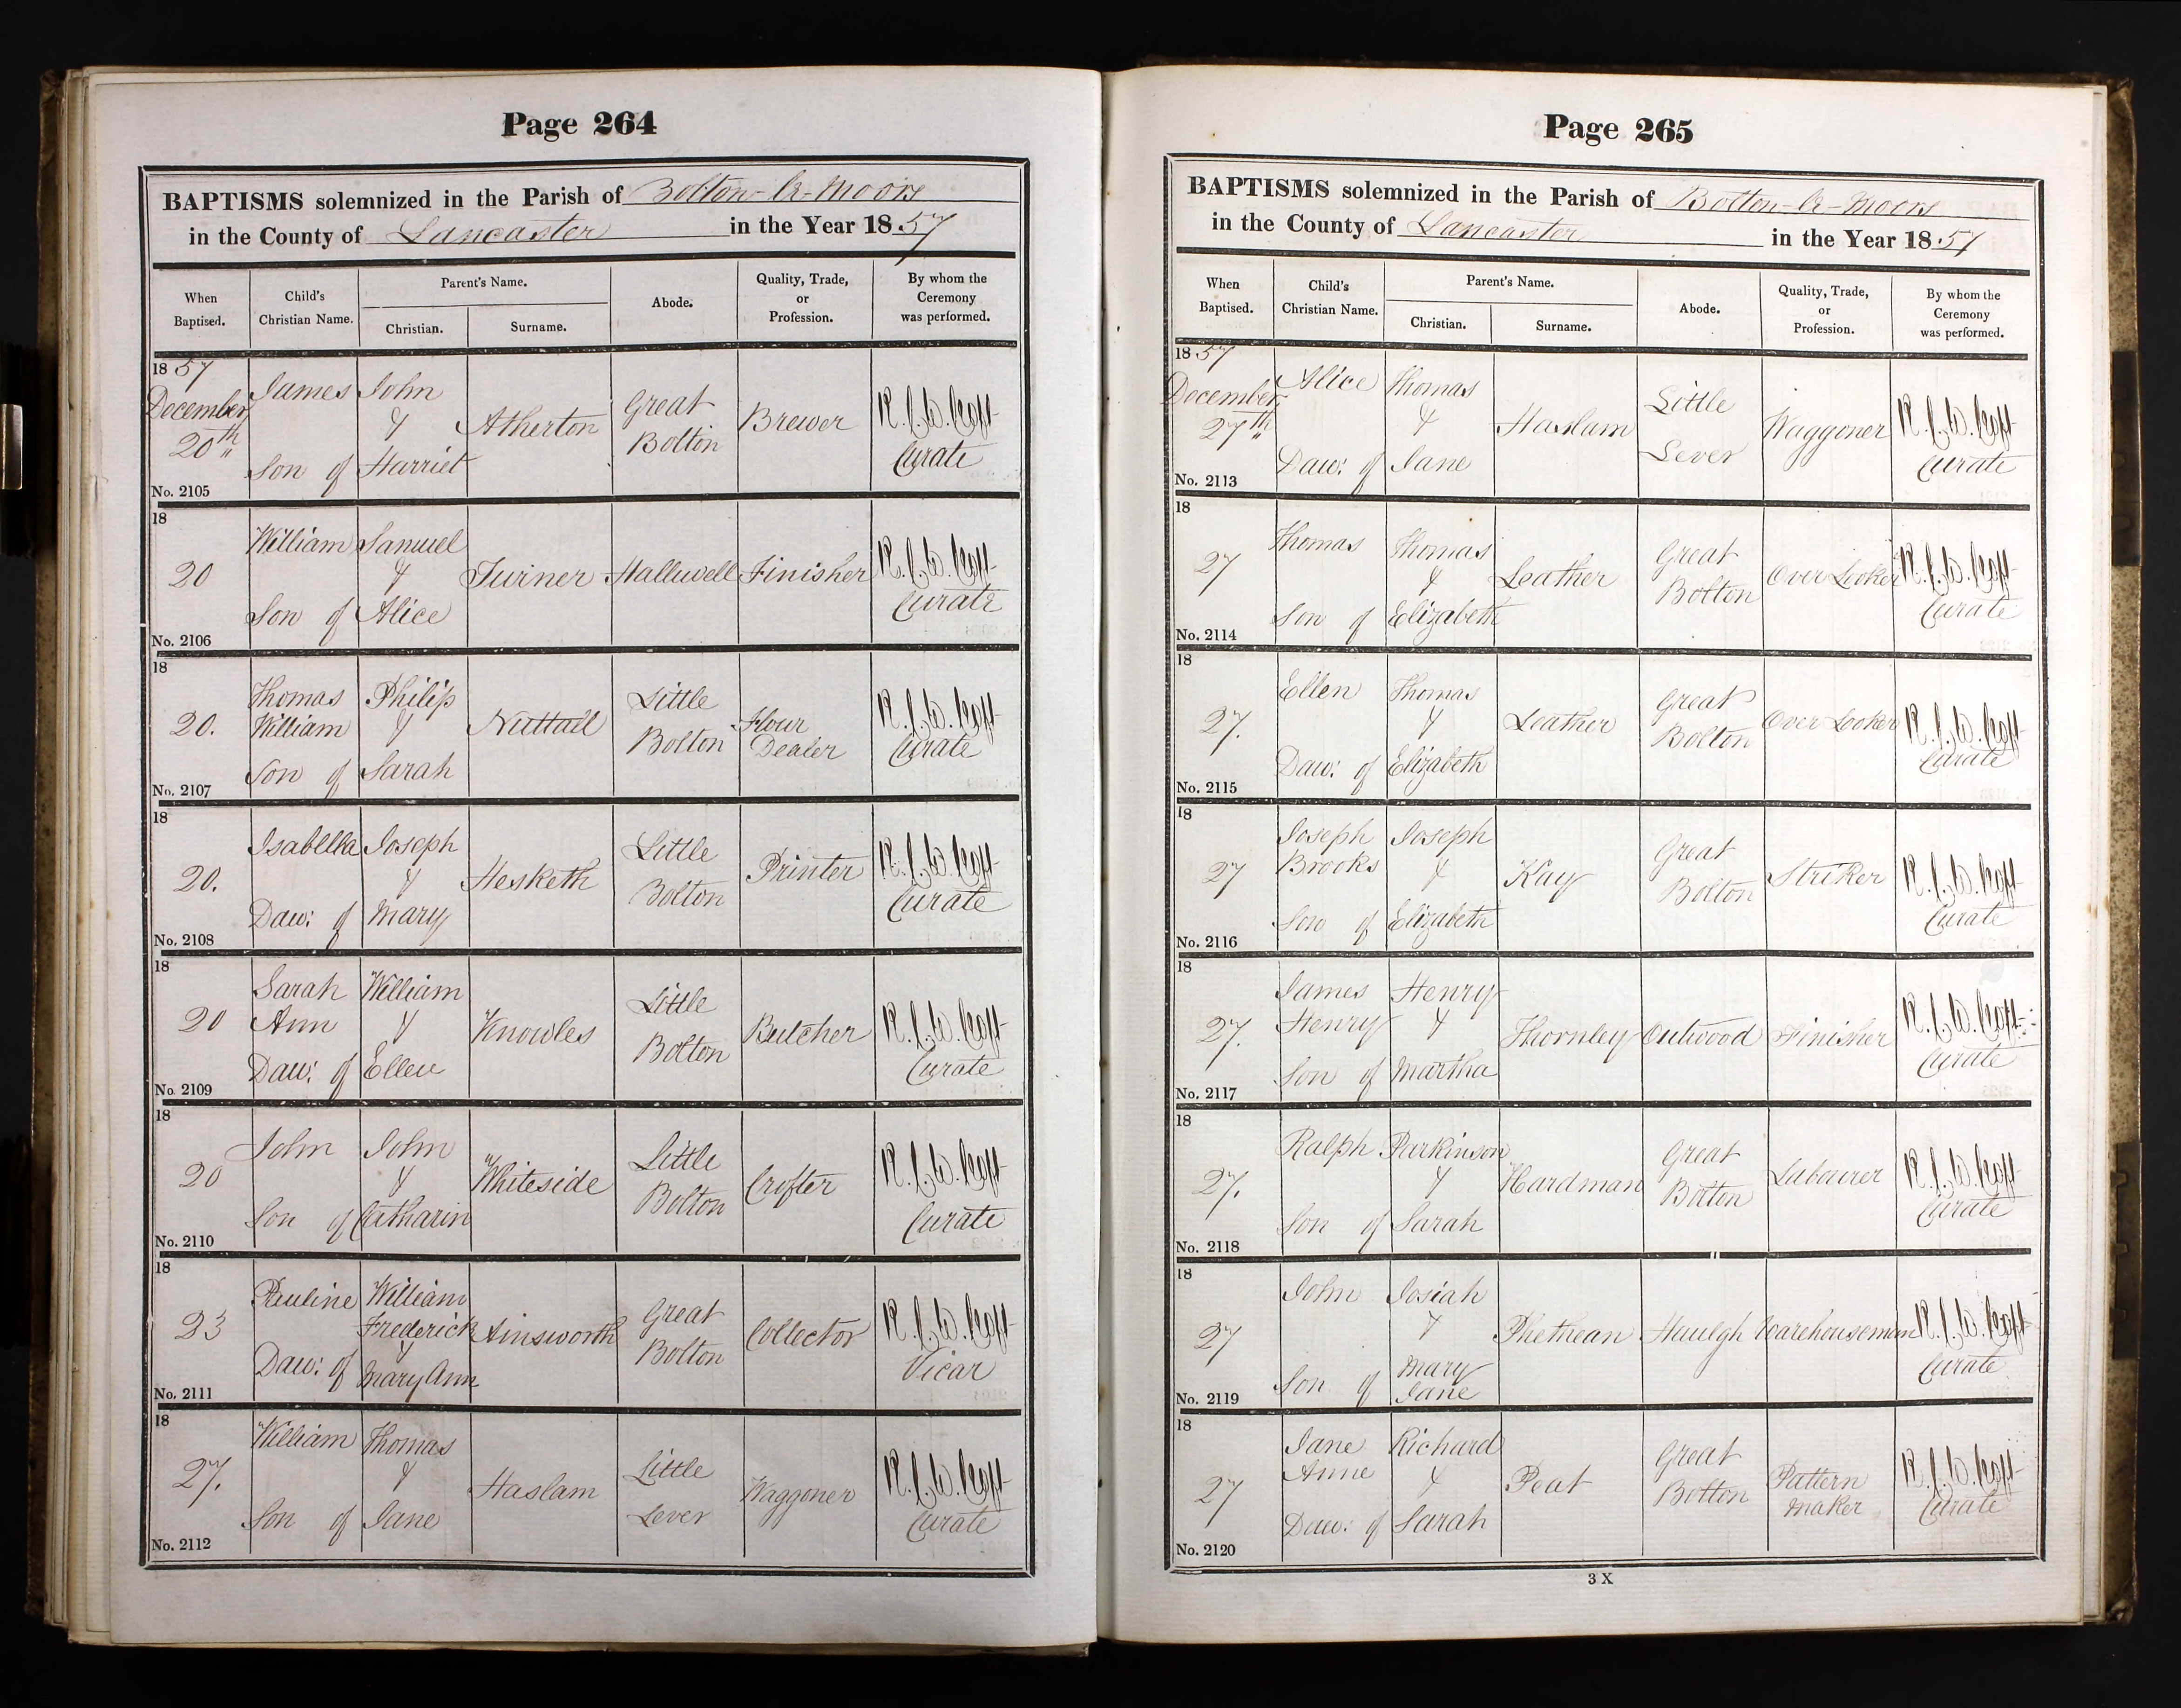 Page 264
BAPTISMS solemnized in the Parish of Bolton-le-Moors
in the County of Lancaster in the Year 1857
When Baptised. Child's Christian Name. Parent's Name. Christian. Surname. Abode. Quality, Trade, or Profession. By whom the Ceremony was performed.
1857 December 20th James Son of John & Harriet Atherton Great Bolton Brewer Curate
No. 2105
18 20 William Son of Samuel & Alice Turner Halliwell Finisher Curate
No. 2106
18 20. Thomas William Son of Philip & Sarah Nuttall Little Bolton Flour Dealer Curate
No. 2107
18 20. Isabella Daw: of Joseph & Mary Hesketh Little Bolton Printer Curate
No. 2108
18 20 Sarah Ann Daw: of William & Ellen Knowles Little Bolton Butcher Curate
No. 2109
18 20 John Son of John & Catharin Whiteside Little Bolton Crofter Curate
No. 2110
18 23 Pauline Daw: of William Frederick & Mary Ann Ainsworth Great Bolton Collector Vicar
No. 2111
18 27. William Son of Thomas & Jane Haslam Little Lever Waggoner Curate
No. 2112
Page 265
BAPTISMS solemnized in the Parish of Bolton-le-Moors
in the County of Lancaster in the Year 1857
When Baptised. Child's Christian Name. Parent's Name. Christian. Surname. Abode. Quality, Trade, or Profession. By whom the Ceremony was performed.
1857 December 27th Alice Daw: of Thomas & Jane Haslam Little Lever Waggoner Curate
No. 2113
18 27 Thomas Son of Thomas & Elizabeth Leather Great Bolton Over Looker Curate
No. 2114
18 27. Ellen Daw: of Thomas & Elizabeth Leather Great Bolton Over Looker Curate
No. 2115
18 27 Joseph Brooks Son of Joseph & Elizabeth Kay Great Bolton Striker Curate
No. 2116
18 27. James Henry Son of Henry & Martha Thornley Outwood Finisher Curate
No. 2117
18 27. Ralph Son of Parkinson & Sarah Hardman Great Bolton Labourer Curate
No. 2118
18 27 John Son of Josiah & Mary Jane Phethean Haulgh Warehouseman Curate
No. 2119
18 27 Jane Anne Daw: of Richard & Sarah Peat Great Bolton Pattern Maker Curate
No. 2120
3 X